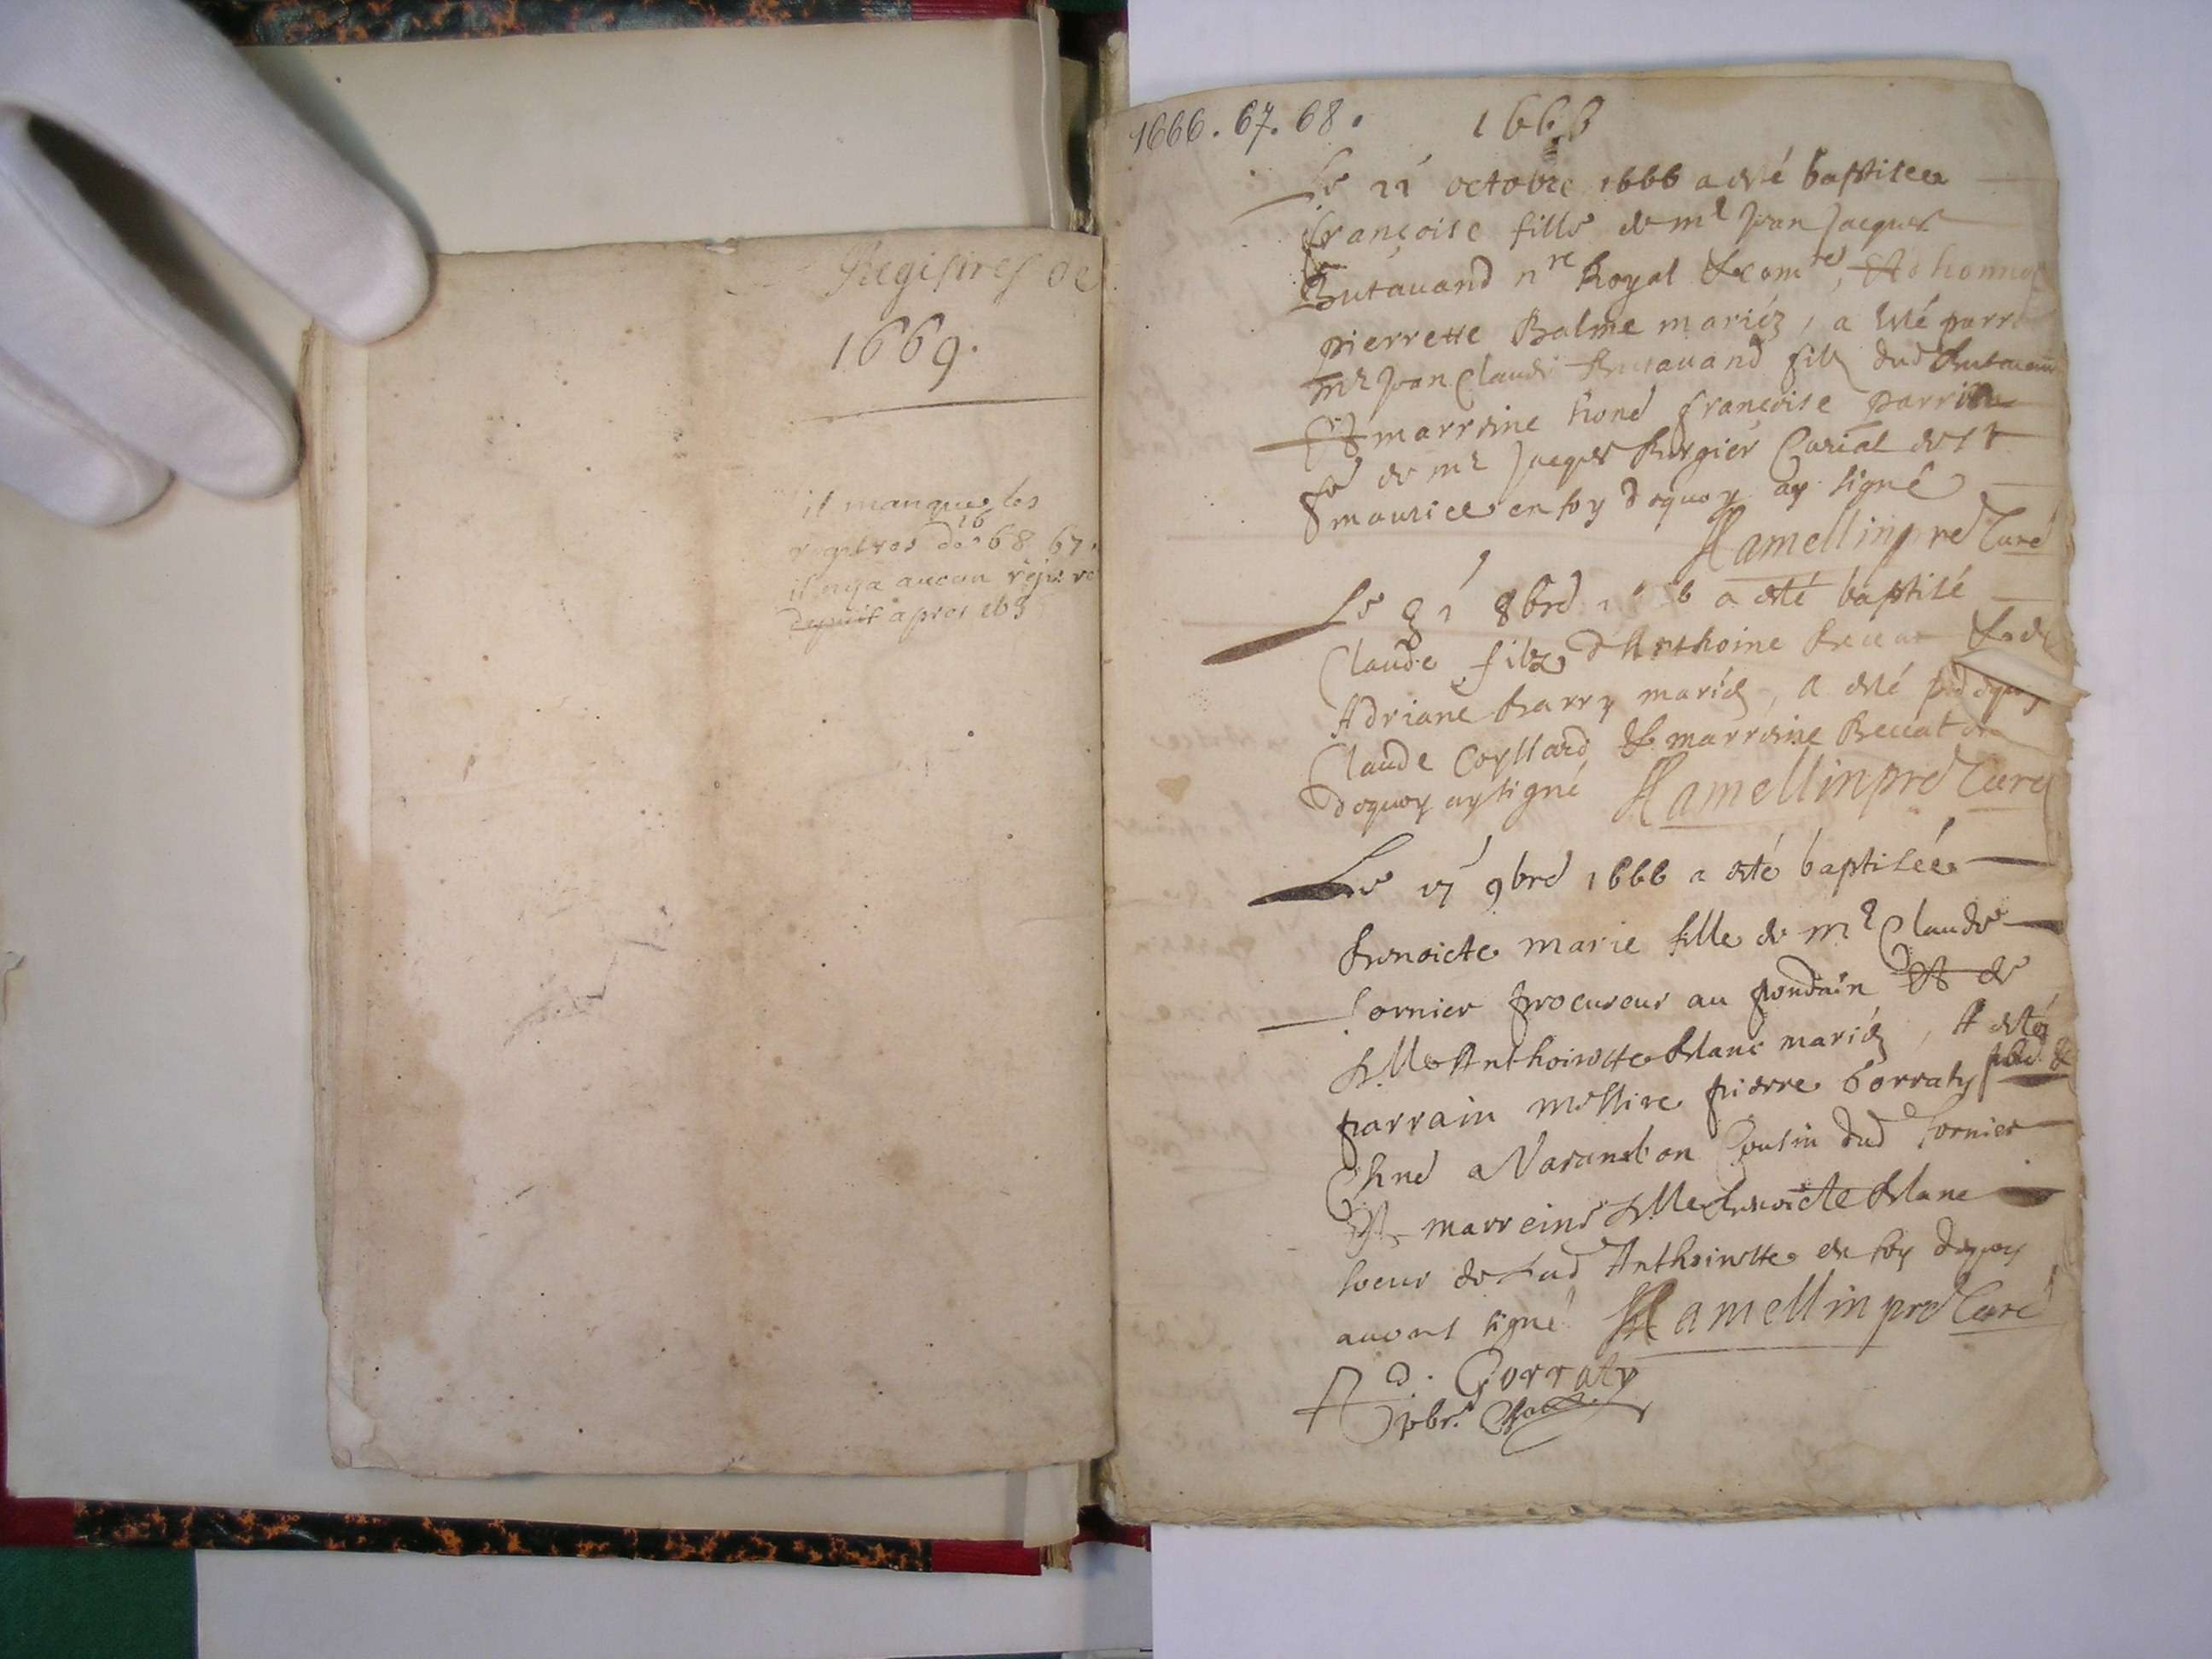 Registres de
1669.
il manque les
registres de 1668 67.
il ny a aucun regis re
depuit apres 165
1666. 67. 68. 1666
Le 21 octobre 1666 a esté baptisee
françoise fille de mr Jean Jacques
Butavand nre Royal & comre, Et d honne
pierrette Balme mariéz, a esté parr
mr Jean Claude Butavand filz dud Butavand
Et marreine hond françoise parr
fe de mr Jacques Bergier Curial de St
maurice en foy dequoy ay signé
Hamellin pre Curé
Le 31 8bre 6 a esté baptisé
Claude filz d'Anthoine Beccat & de
Adriane Barry mariéz, a esté
Claude Coyllard & marreine Beccat
dequoy ay signé Hamellin pre Curé
Le 9bre 1666 a esté baptisée
Benoicte marie fille de mr Claude
Cornier procureur au pondain Et de
dlle Anthoinette Blanc mariéz, A esté
parrain messire pierre Gorraty pbre &
Chne a Varambon Cousin dud Cornier
Et marreine dlle Benoicte Blanc
soeur de lad Anthoinette en foy dequoy
avons signé Hamellin pre Curé
Gorraty
pbr.